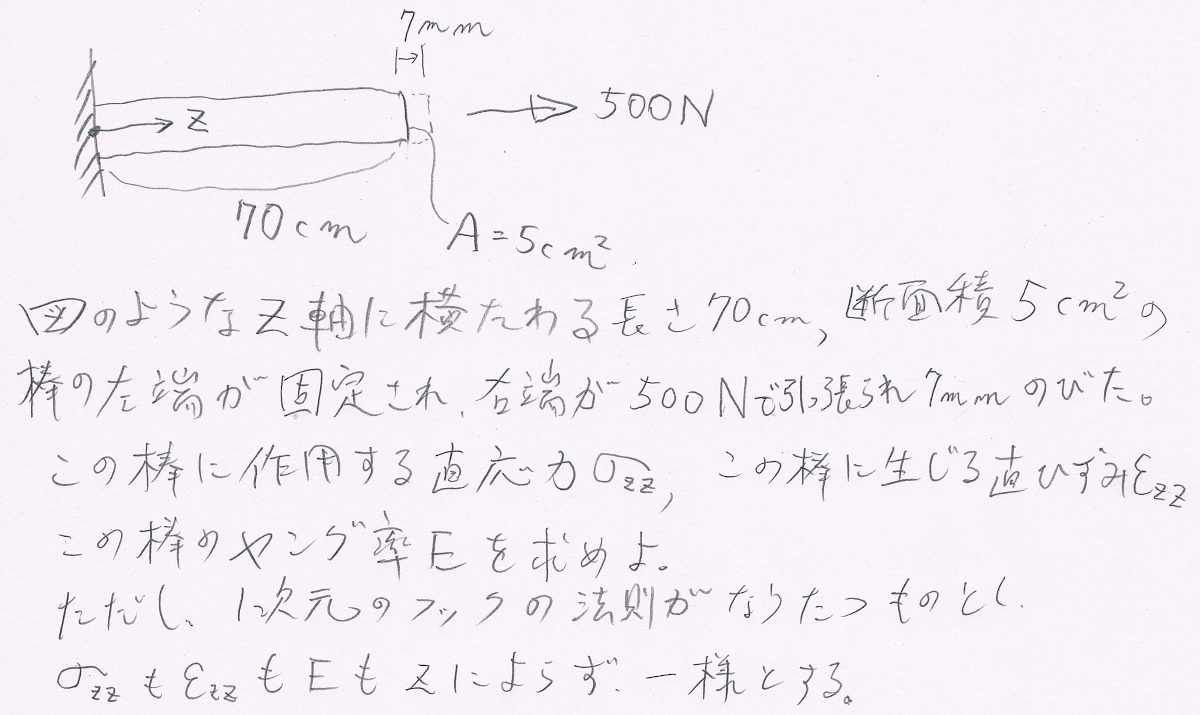 7mm
z
500N
70cm
A=5cm²
図のようなZ軸に横たわる長さ70cm, 断面積5cm²の
棒の左端が固定され、右端が500Nで引っ張られ7mmのびた。
この棒に作用する直応力σzz, この棒に生じる直ひずみεzz
この棒のヤング率Eを求めよ。
ただし、1次元のフックの法則がなりたつものとし、
σzzもεzzもEもzによらず、一様とする。